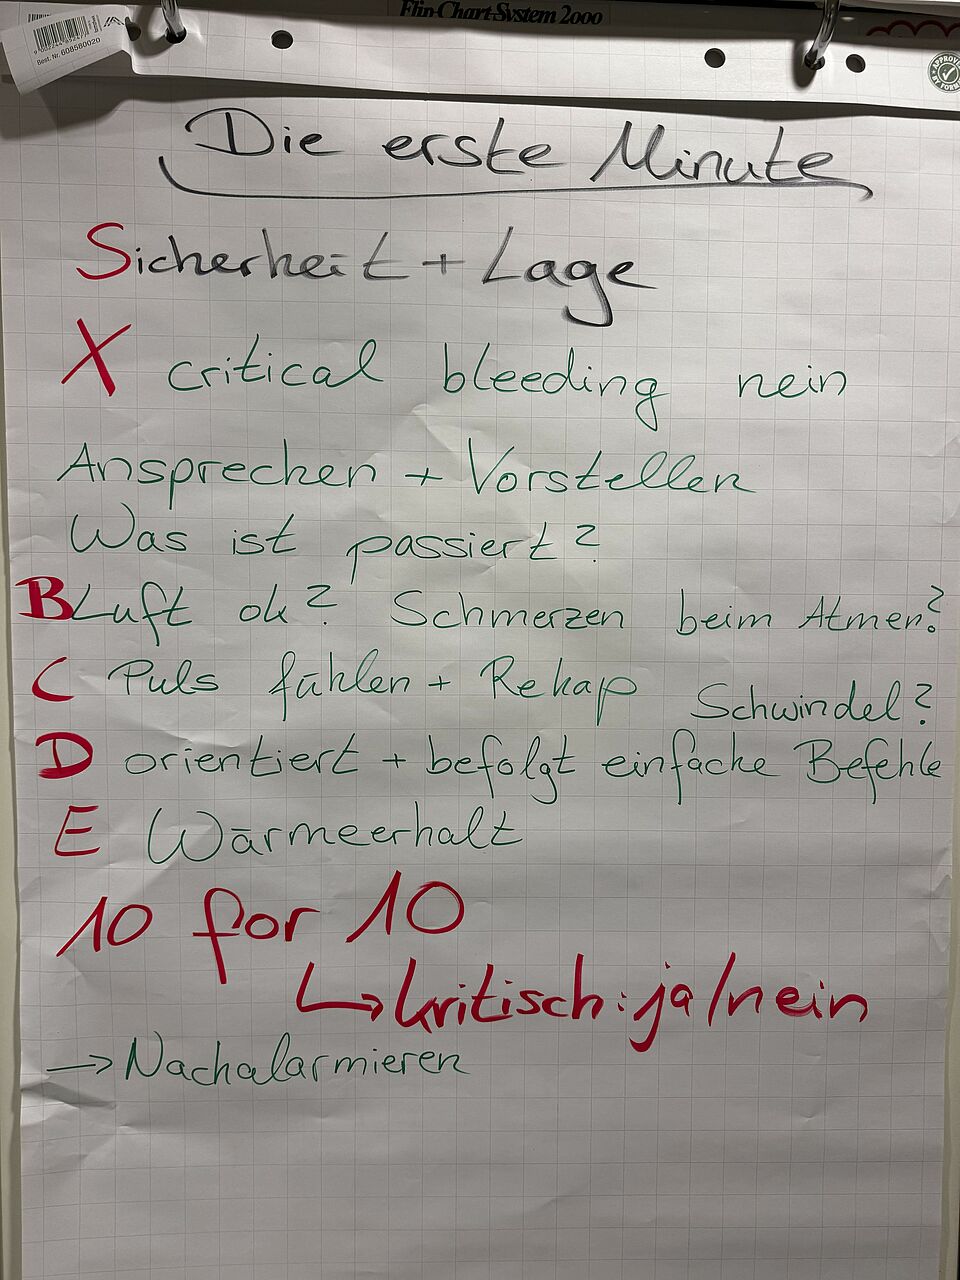 Flip-Chart-System 2000
Best. Nr. 608580020
APPROVED
Die erste Minute
Sicherheit + Lage
X critical bleeding nein
Ansprechen + Vorstellen
Was ist passiert?
B Luft ok? Schmerzen beim Atmen?
C Puls fühlen + Rekap Schwindel?
D orientiert + befolgt einfache Befehle
E Wärmeerhalt
10 for 10
↳ kritisch: ja/nein
→ Nachalarmieren